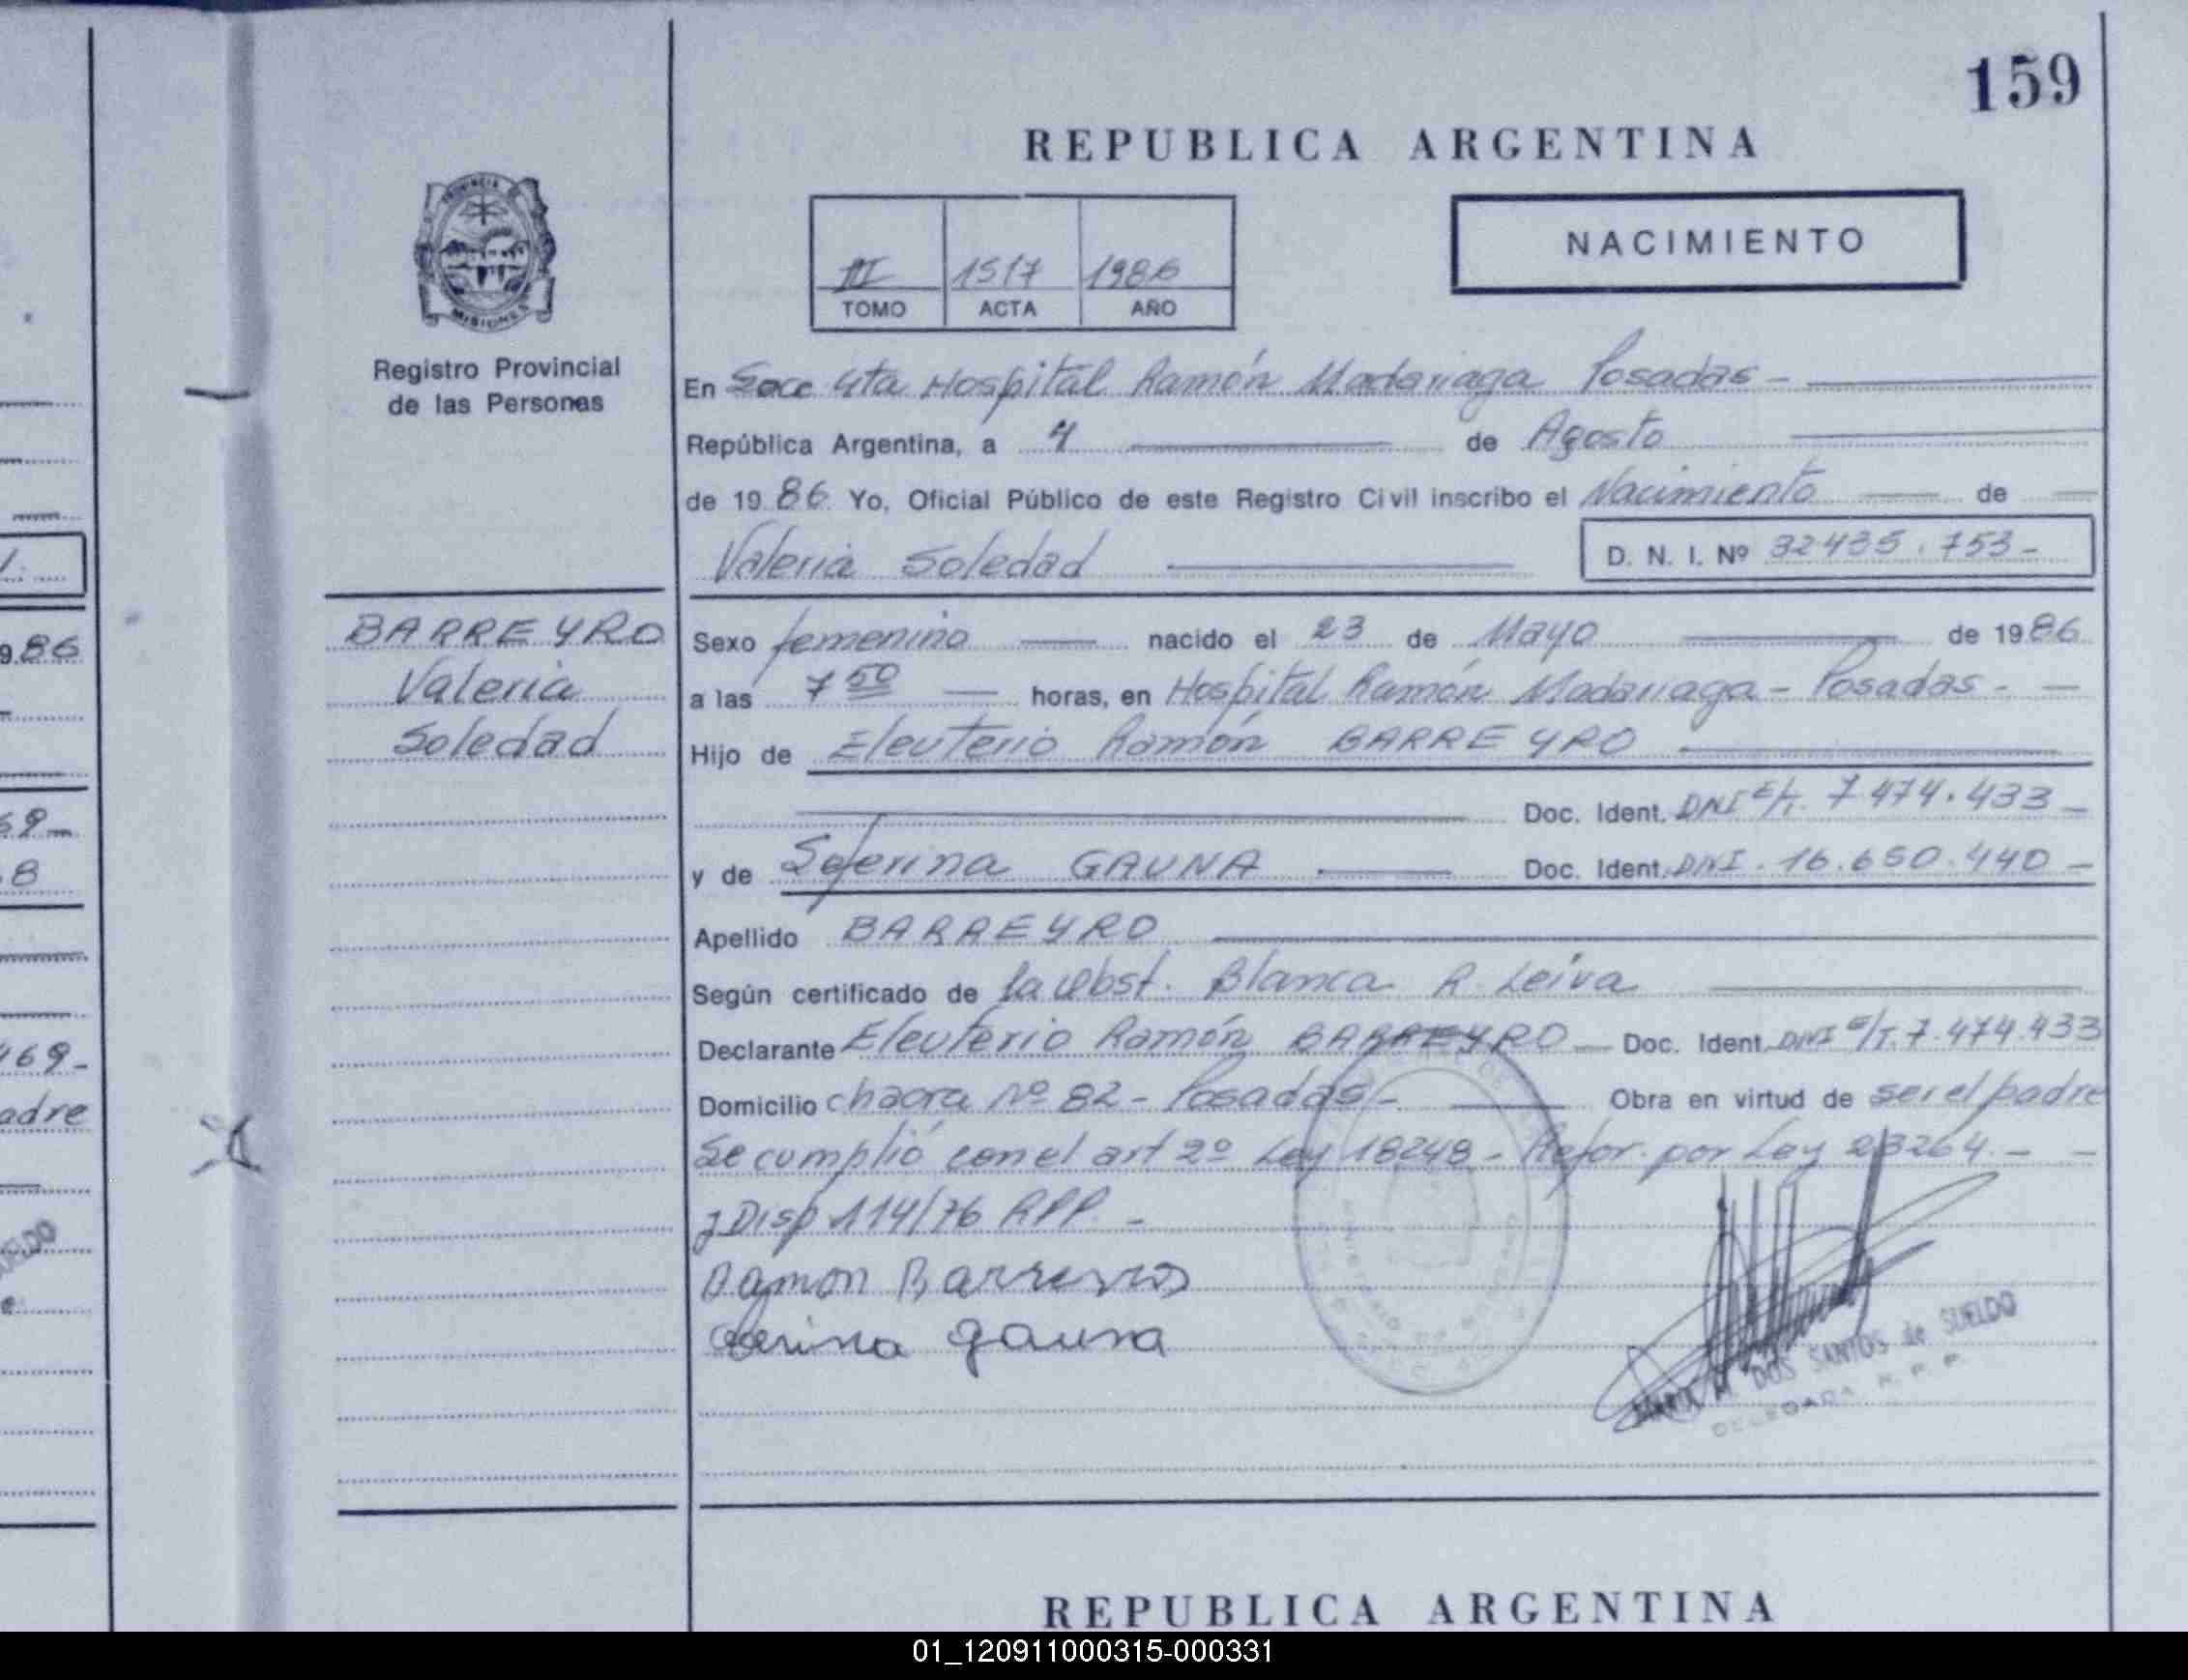 159
REPUBLICA ARGENTINA
III 1517 1986
TOMO ACTA AÑO
NACIMIENTO
MISIONES
Registro Provincial
de las Personas
En Secc 4ta Hospital Ramón Madariaga Posadas -
República Argentina, a 4 de Agosto
de 1986 Yo, Oficial Público de este Registro Civil inscribo el Nacimiento de
Valeria Soledad D. N. I. Nº 32435.753-
BARREYRO
Valeria
Soledad
Sexo femenino nacido el 23 de Mayo de 1986
a las 7 50 horas, en Hospital Ramón Madariaga - Posadas -
Hijo de Eleuterio Ramón BARREYRO
Doc. Ident. DNI E/T. 7.474.433-
y de Seferina GAUNA Doc. Ident. DNI. 16.650.440-
Apellido BARREYRO
Según certificado de la Obst. Blanca R. Leiva
Declarante Eleuterio Ramón BARREYRO - Doc. Ident. DNI E/T. 7.474.433
Domicilio chacra Nº 82 - Posadas - Obra en virtud de ser el padre
Se cumplió con el art 2º Ley 18248 - Refor. por Ley 23264. -
y Disp 114/76 RPP. -
Ramon Barreyro
Seferina gauna
DOS SANTOS de SUELDO
DELEGADA R. P. P.
REPUBLICA ARGENTINA
986
69-
8
169-
adre
01_120911000315-000331